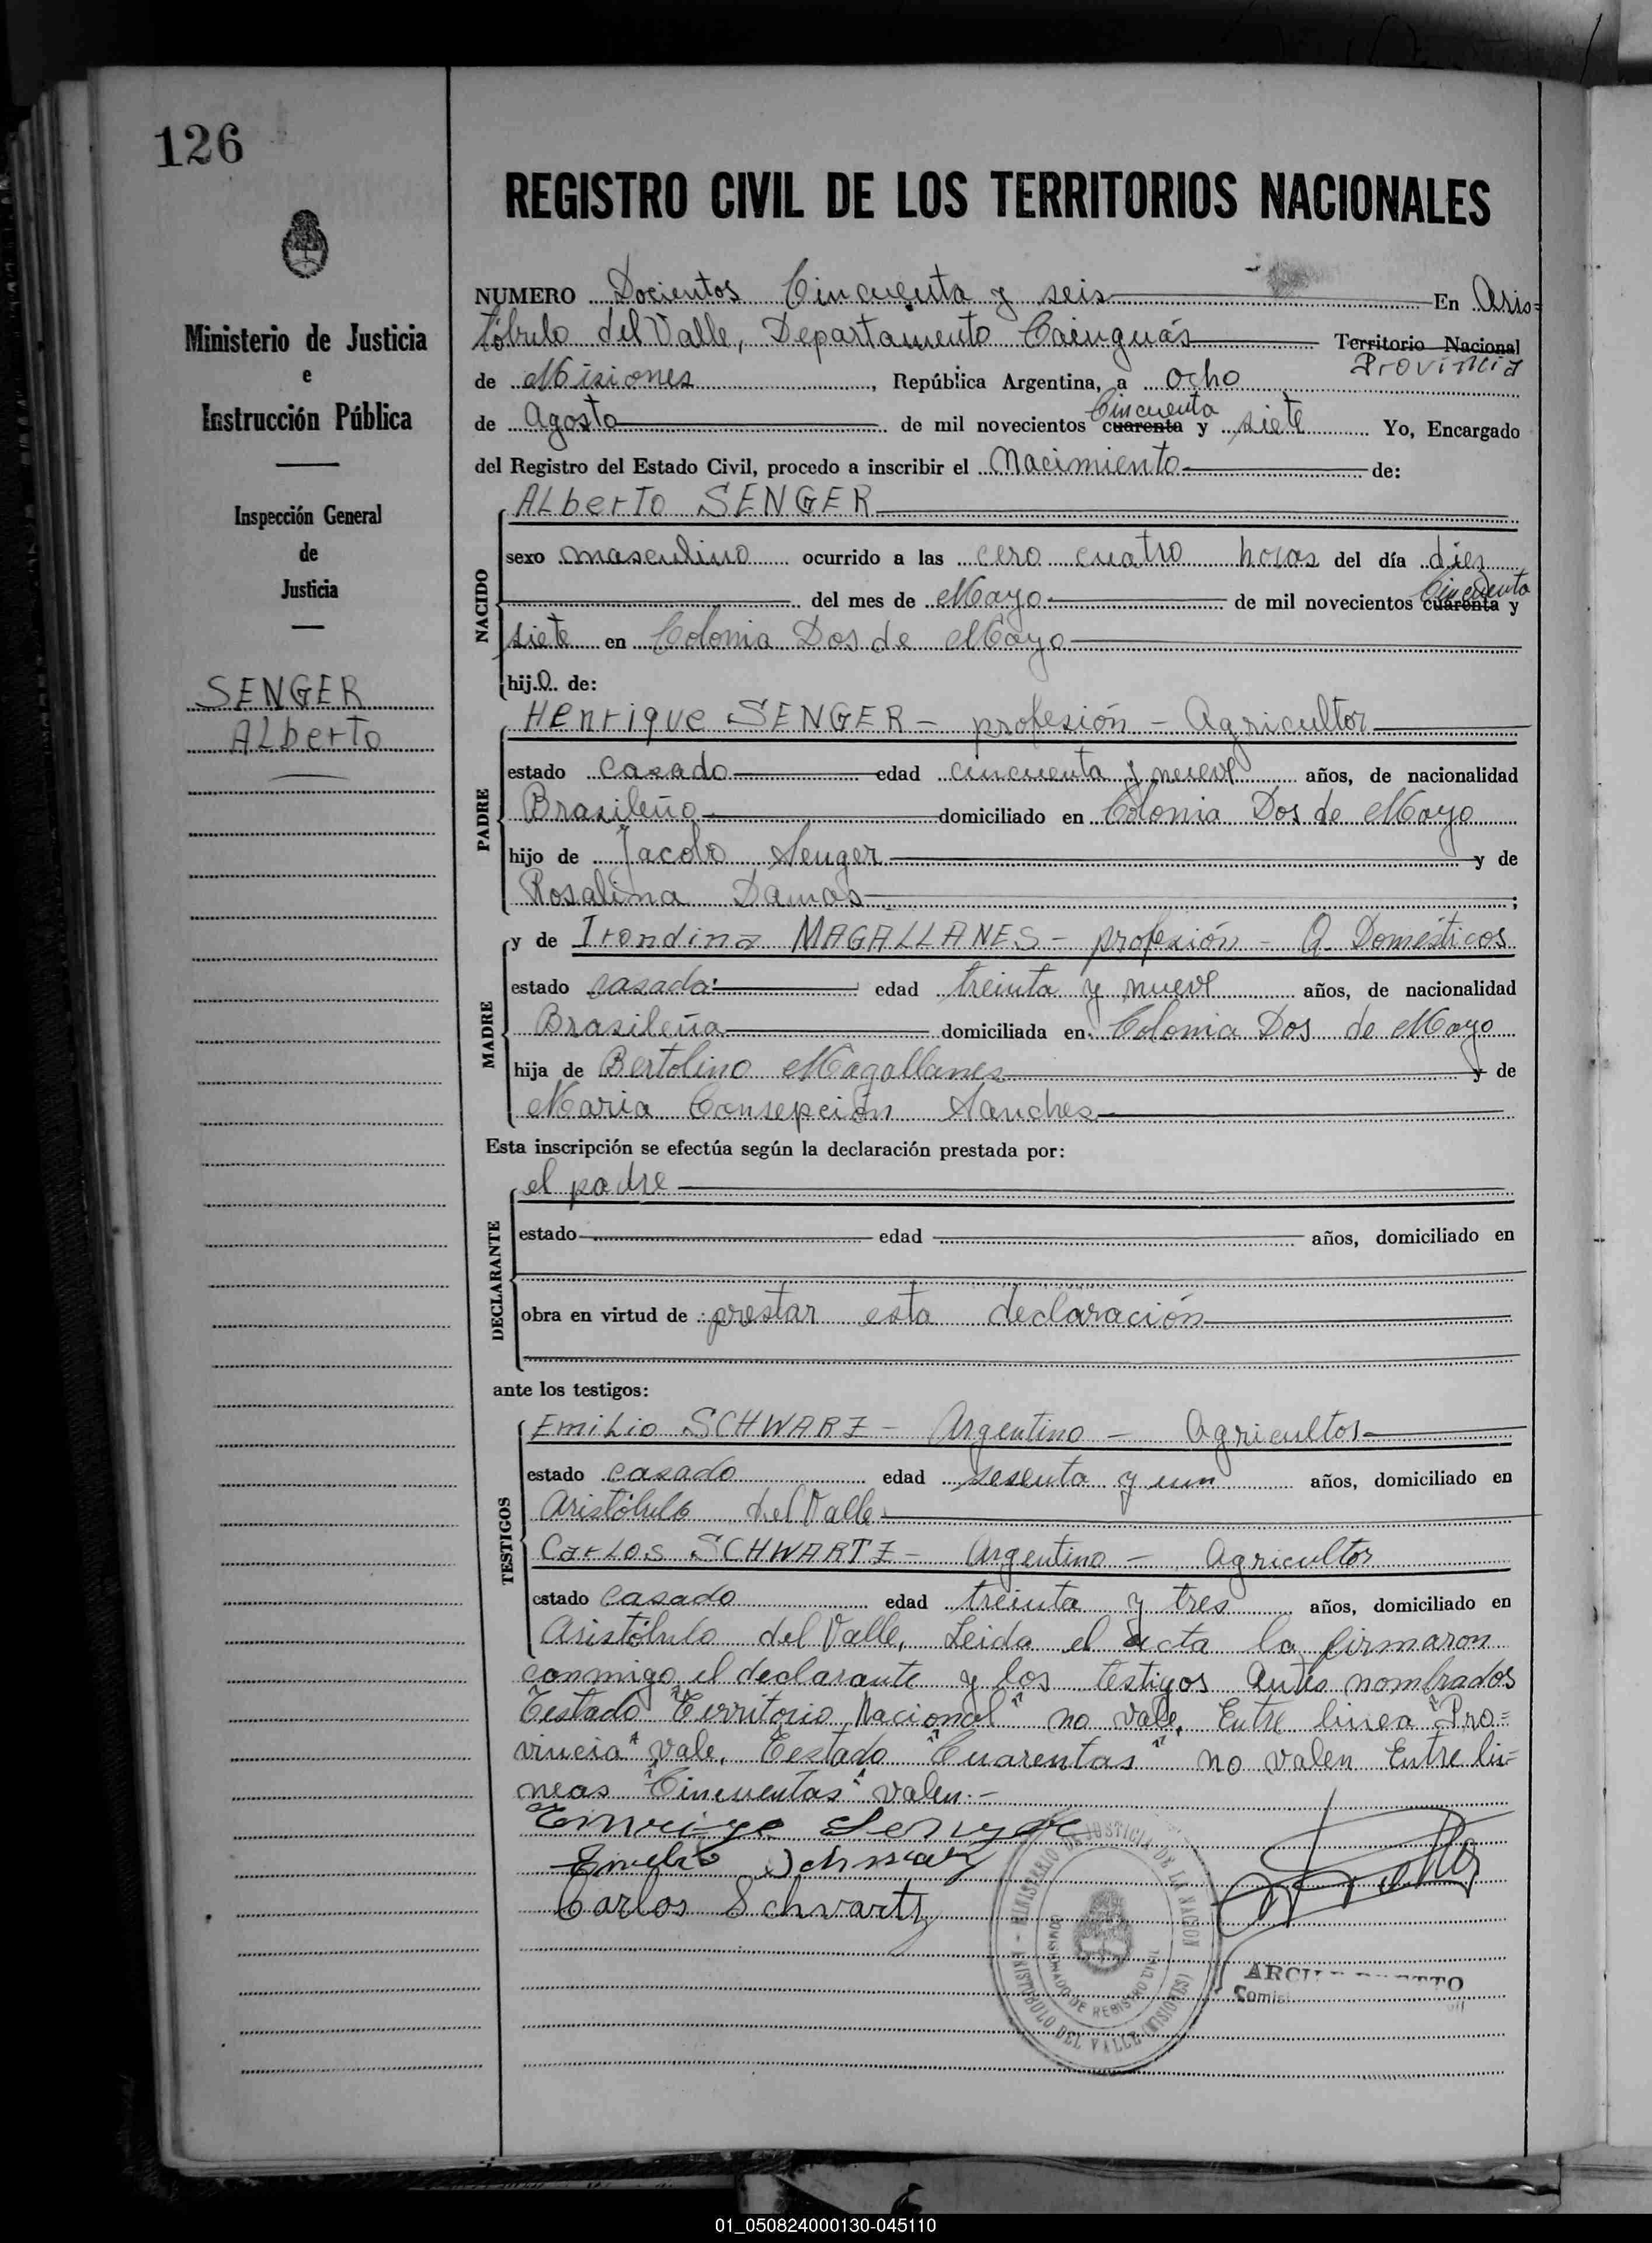 126
REGISTRO CIVIL DE LOS TERRITORIOS NACIONALES
Ministerio de Justicia
e
Instrucción Pública
Inspección General
de
Justicia
SENGER
ALberto
NUMERO Docientos Cincuenta y seis En Aris=
tóbulo del Valle, Departamento Cainguás Territorio Nacional
Provincia
de Misiones, República Argentina, a ocho
Cincuenta
de Agosto de mil novecientos cuarenta y siete Yo, Encargado
del Registro del Estado Civil, procedo a inscribir el Nacimiento de:
NACIDO
ALberto SENGER
sexo masculino ocurrido a las cero cuatro horas del día diez
Cincuenta
del mes de Mayo de mil novecientos cuarenta y
siete en Colonia Dos de Mayo
hijo de:
PADRE
Henrique SENGER - profesión - Agricultor
estado casado edad cincuenta y nueve años, de nacionalidad
Brasileño domiciliado en Colonia Dos de Mayo
hijo de Jacobo Senger y de
Rosalina Damas;
MADRE
y de Irondina MAGALLANES - profesión - Q. Domésticos
estado casada edad treinta y nueve años, de nacionalidad
Brasileña domiciliada en Colonia Dos de Mayo
hija de Bertolino Magallanes y de
Maria Consepción Sanches
Esta inscripción se efectúa según la declaración prestada por:
DECLARANTE
el padre
estado edad años, domiciliado en
obra en virtud de prestar esta declaración
ante los testigos:
TESTIGOS
Emilio SCHWARZ - Argentino - Agricultor
estado casado edad sesenta y un años, domiciliado en
Aristóbulo del Valle
Carlos SCHWARTZ - Argentino - Agricultor
estado casado edad treinta y tres años, domiciliado en
Aristóbulo del Valle, Leida el acta la firmaron
conmigo el declarante y los testigos antes nombrados
Testado "Territorio Nacional" no vale, Entre linea "Pro=
vincia" vale. Testado "Cuarentas" no valen Entre li=
neas "Cincuentas" valen.-
Enrique Senger
Emilio Schwarz
Carlos Schvartz
MINISTERIO DE JUSTICIA DE LA NACION
ARISTOBULO DEL VALLE (MISIONES)
01_050824000130-045110